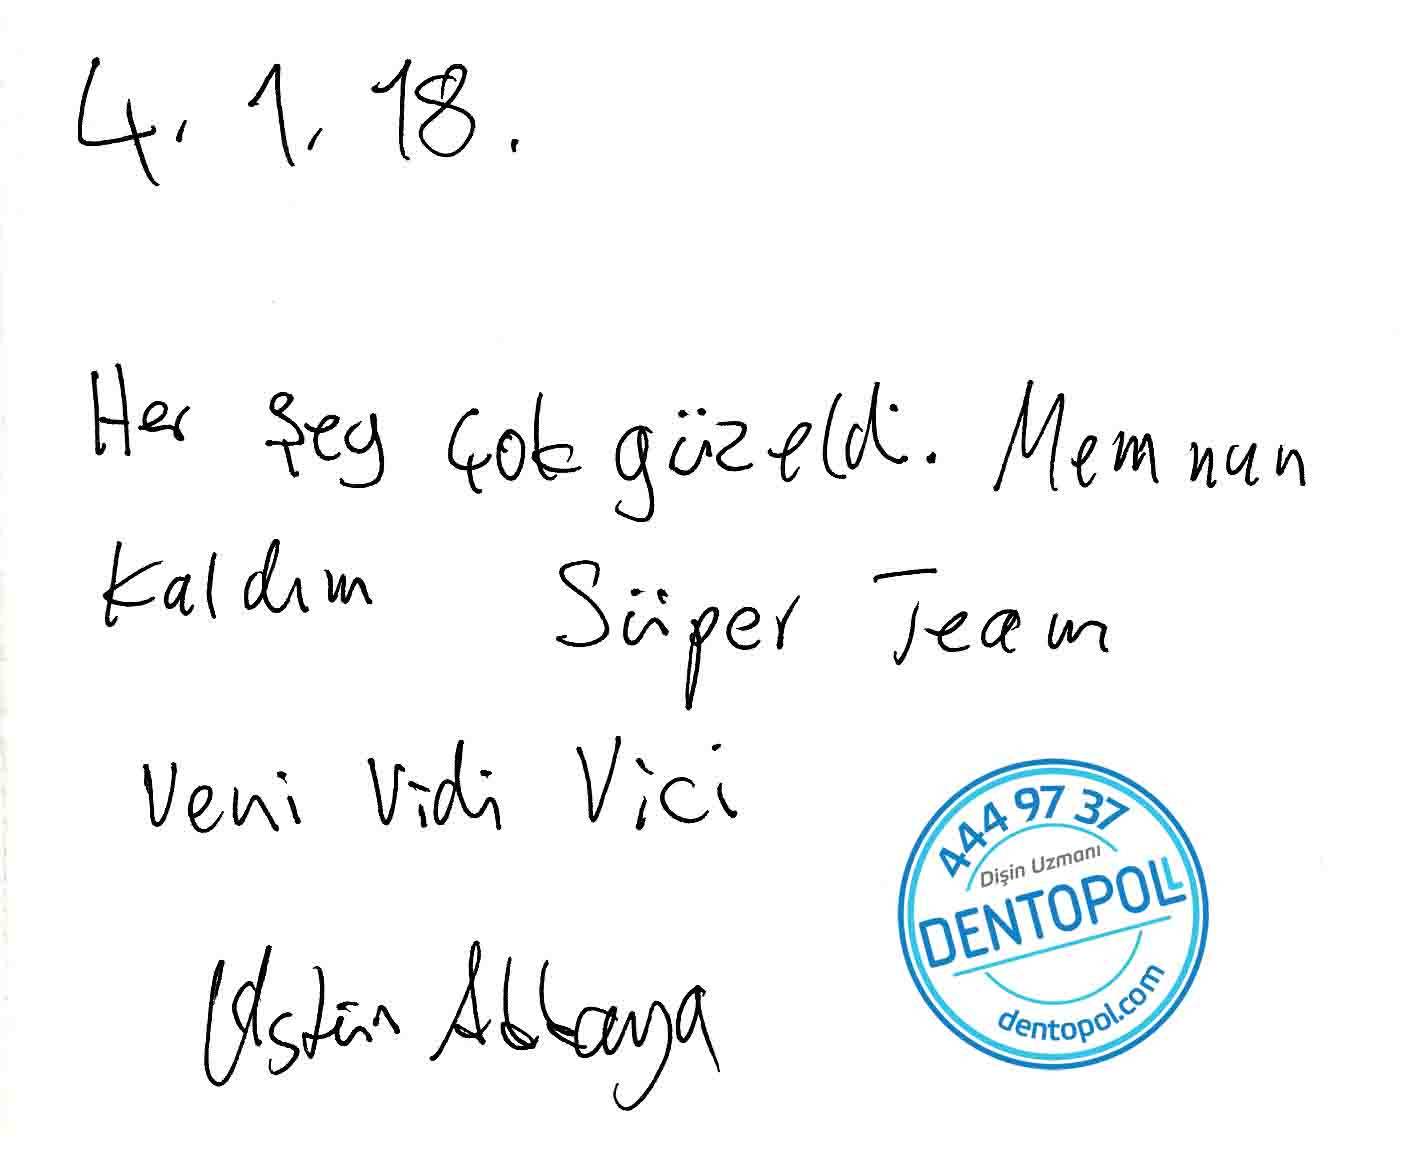 4. 1. 18.
Her şey çok güzeldi. Memnun
kaldım Süper Team
Veni Vidi Vici
Üstün Akkaya
444 97 37
Dişin Uzmanı
DENTOPOL
dentopol.com